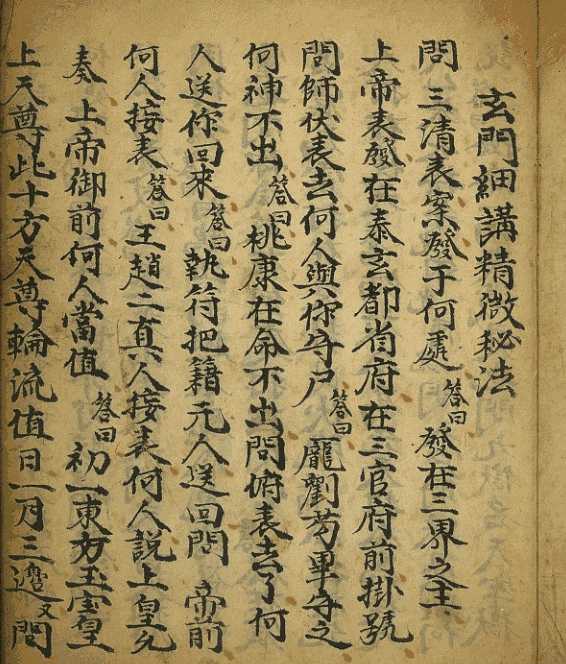 玄門細講精微秘法
問 三清表案發于何處 答曰 發在三界之主
上帝表發在泰玄都省府在三官府前掛號
問師伏表去何人與你守尸 答曰 龐劉苟畢守之
何神不出 答曰 桃康在命不出問俯表去了何
人送你回來 答曰 執符把籍元人送回問 帝前
何人接表 答曰 王趙二真人接表何人說上皇允
奏 上帝御前何人當值 答曰 初一東方玉寶皇
上天尊此十方天尊輪流值日一月三遶又問